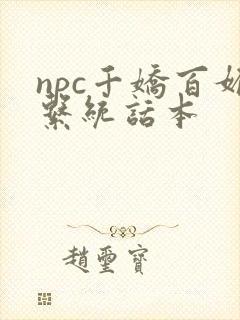 npc千嬌百媚
繫統話本
趙璽寶